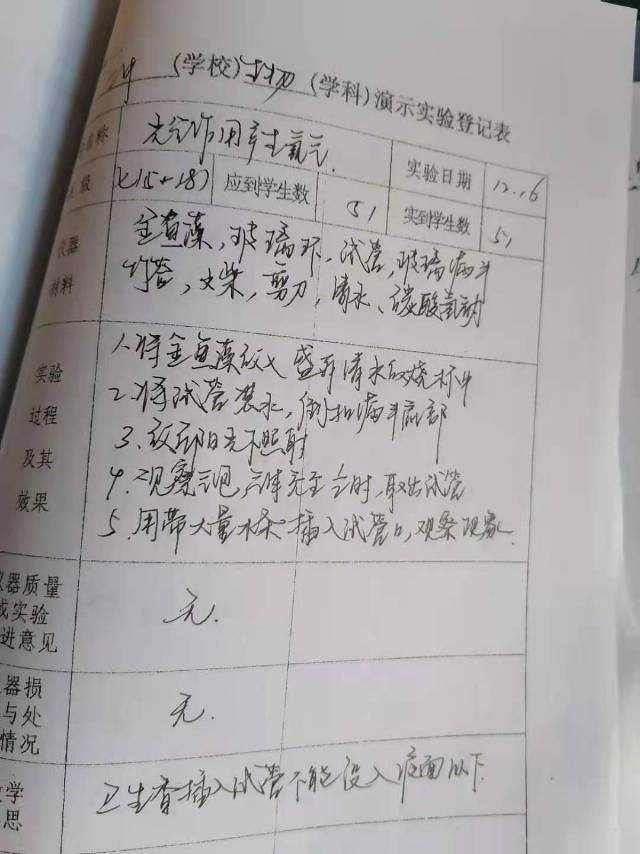 (学校) 生物 (学科) 演示实验登记表
名称 光合作用产生氧气. 实验日期 12.16
级 应到学生数 51 实到学生数 51
仪器 金鱼藻,玻璃杯,试管,玻璃漏斗
材料 火柴,剪刀,清水、碳酸氢钠
实验 1.将金鱼藻放入盛弃清水的烧杯中
过程 2.将试管装水,倒扣漏斗底部
及其 3.放到阳光下照射
效果 4.观察气泡,气体充至 时,取出试管
5.用带 插入试管口,观察现象.
仪器质量
或实验 无.
进意见
器损
与处 无.
情况
学 卫生香插入试管不能没入液面以下
思